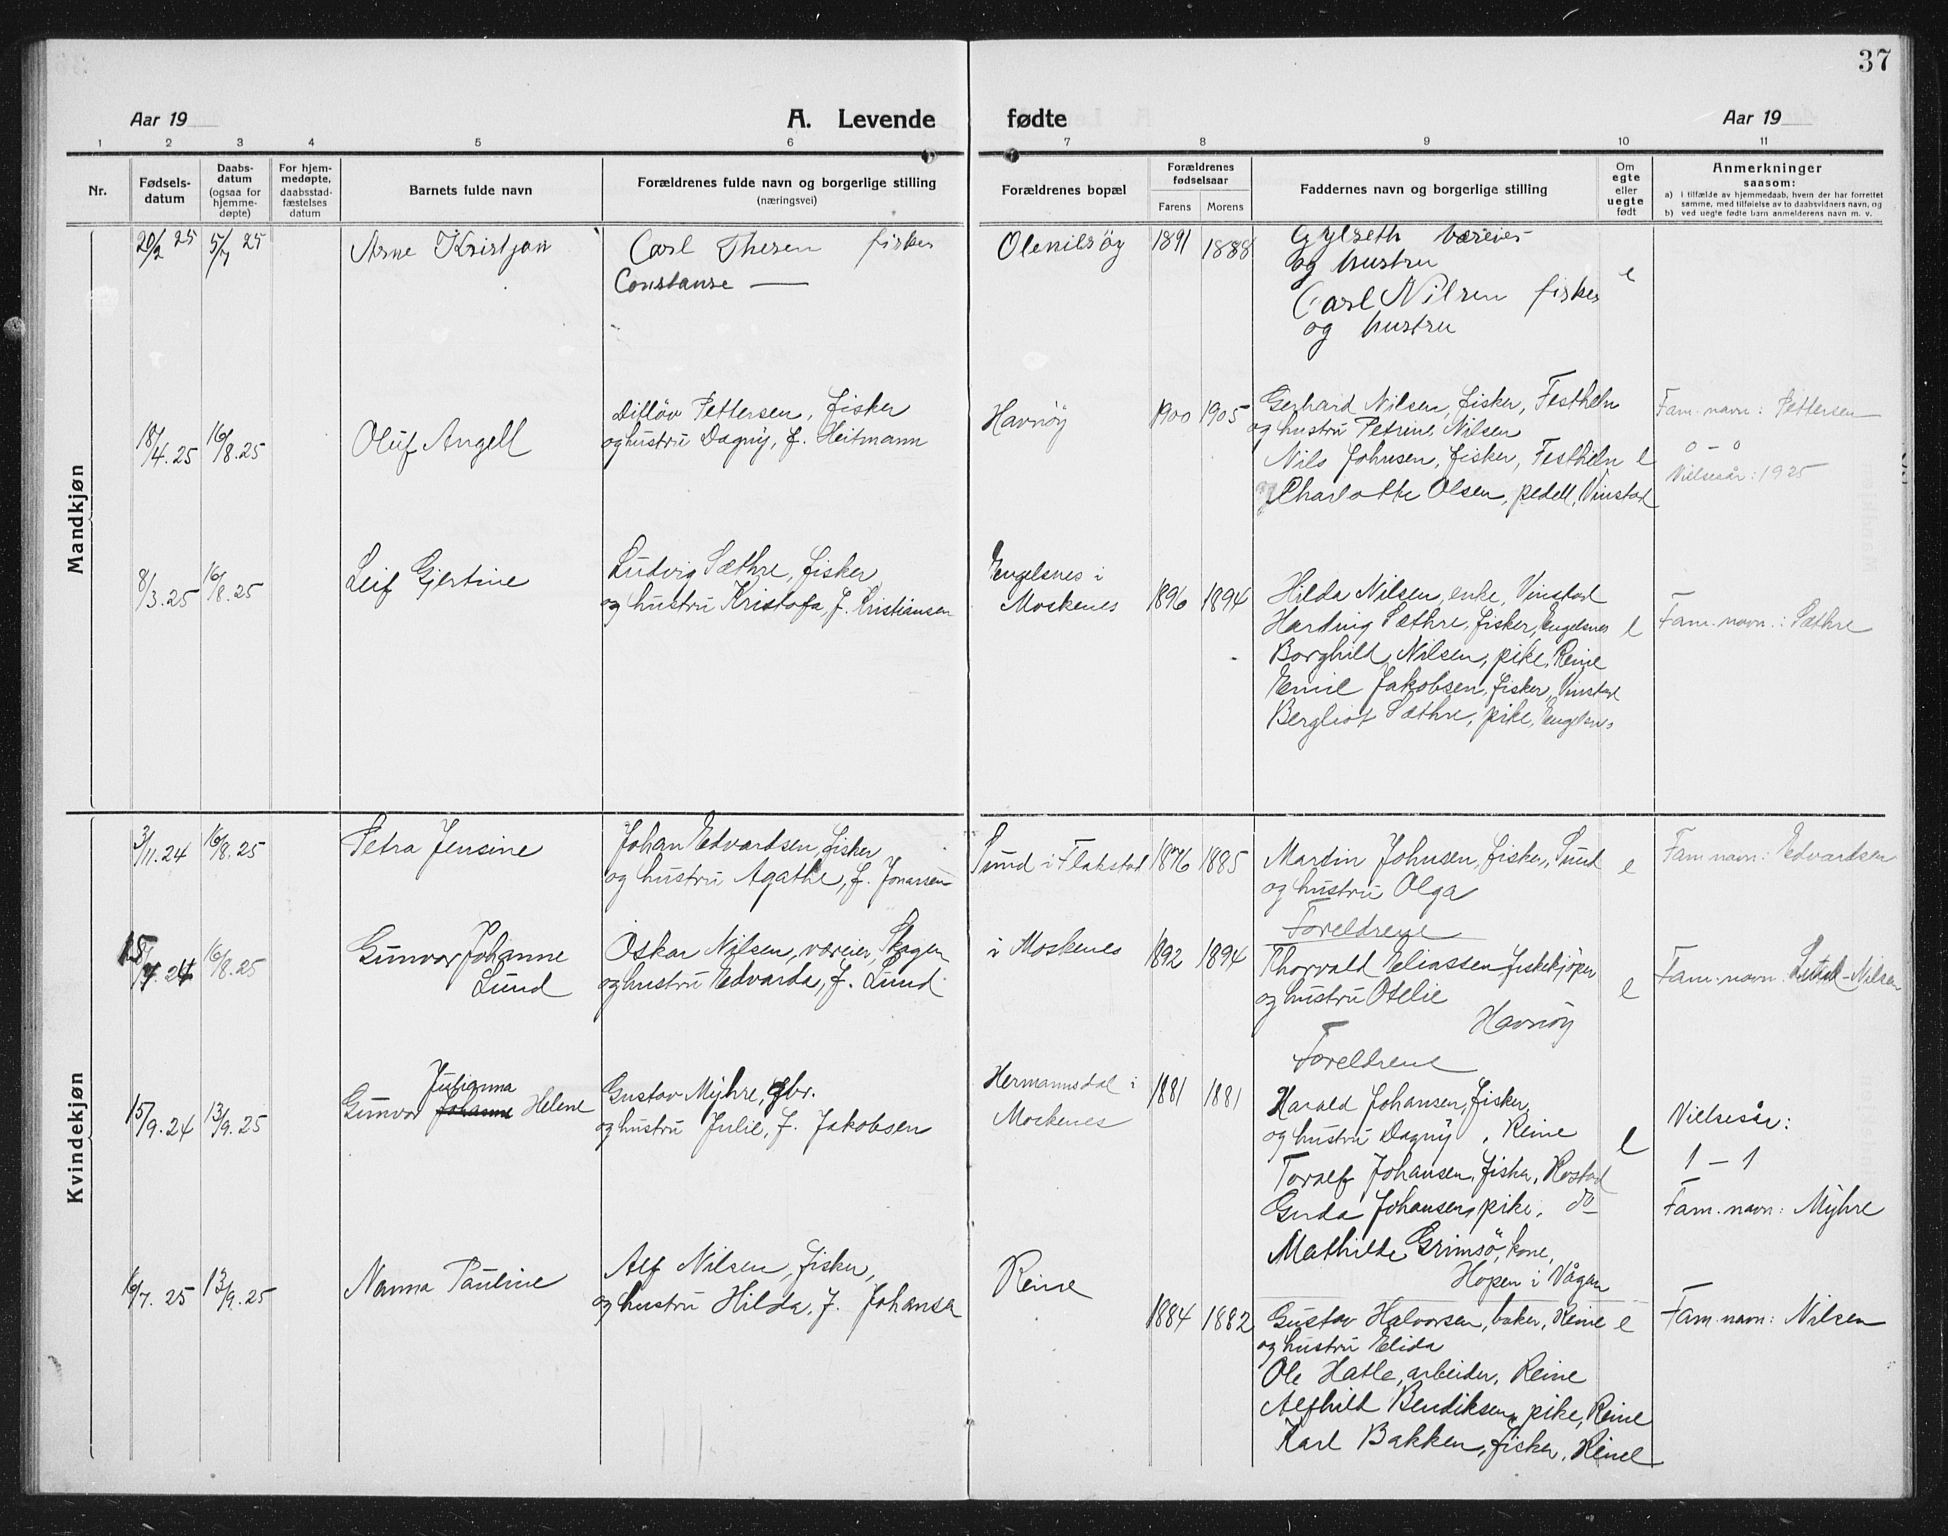 37
Aar 19
A. Levende
fødte
Aar 19
1 2 3 4 5 6 7 8 9 10 11
Nr.
Fødsels-
datum
Daabs-
datum
(ogsaa for
hjemme-
døpte)
For hjem-
medøpte,
daabsstad-
fæstelses
datum
Barnets fulde navn
Forældrenes fulde navn og borgerlige stilling
(næringsvei)
Forældrenes bopæl
Forældrenes
fødselsaar
Farens
Morens
Faddernes navn og borgerlige stilling
Om
egte
eller
uegte
født
Anmerkninger
saasom:
a) i tilfælde av hjemmedaab, hvem der har forrettet
samme, med tilføielse av to daabsvidners navn, og
b) ved uegte fødte barn anmelderens navn m. v.
Mandkjøn
20/2 25 5/7 25
Arne Kristjan
Carl Thesen fisker
Constanse —
Olenilsöy
1891 1888
Gylseth væreier
og hustru
Carl Nilsen fisker
og hustru
e
18/4.25 16/8.25
Oluf Angell
Ditlöv Pettersen, fisker
og hustru Dagny, f. Heitmann
Havnöy
1900 1905
Gerhard Nilsen, fisker, Festheln
og hustru Petrine Nilsen
Nils Johnsen, fisker, Festheln
Charlotte Olsen, pedell, Vinstad
e
Fam. navn: Pettersen
0 – 0
Vielsesår: 1925
8/3.25 16/8.25
Leif Gjertine
Ludvig Sæthre, fisker
og hustru Kristofa, f. Kristiansen
Engelsnes i
Moskenes
1896 1894
Hilda Nilsen, enke, Vinstad
Hardvig Sæthre, fisker, Engelsnes
Borghild Nilsen, pike, Reine
Emil Jakobsen, fisker, Vinstad
Bergliot Sæthre, pike, Engelsnes
e
Fam. navn.: Sæthre
Kvindekjøn
3/11.24 16/8.25
Petra Jensine
Johan Edvardsen, fisker
og hustru Agathe, f. Jonassen
Sund i Flakstad
1876 1885
Martin Johnsen, fisker, Sund
og hustru Olga
Foreldrene
e
Fam. navn: Edvardsen
16/8.25
Gunvor Johanne
Lund
Oskar Nilsen, væreier, Skagen
og hustru Edvarda, f. Lund
i Moskenes
1892 1894
Thorvald Eliassen, fiskekjöper
og hustru Otelie
Havnöy
Foreldrene
e
Fam. navn: Lund-Nilsen
15/9.24 13/9.25
Julianna
Gunvor Johanne Helene
Gustav Myhre, gbr.
og hustru Julie, f. Jakobsen
Hermannsdal i
Moskenes
1881 1881
Harald Johansen, fisker
og hustru Dagny, Reine
Toralf Johansen, fisker, Rostad
Gerda Johansen, pike, do
Mathilde Grimsö, kone,
Hopen i Vågan
e
Vielsesår:
1 – 1
Fam. navn: Myhre
16/7. 25 13/9.25
Nanna Pauline
Alf Nilsen, fisker,
og hustru Hilda, f. Johansa
Reine
1884 1882
Gustav Halvorsen, baker, Reine
og hustru Elida
Ole Hatle, arbeider, Reine
Alfhild Bendiksen, pike, Reine
Karl Bakken, fisker, Reine
e
Fam. navn: Nilsen